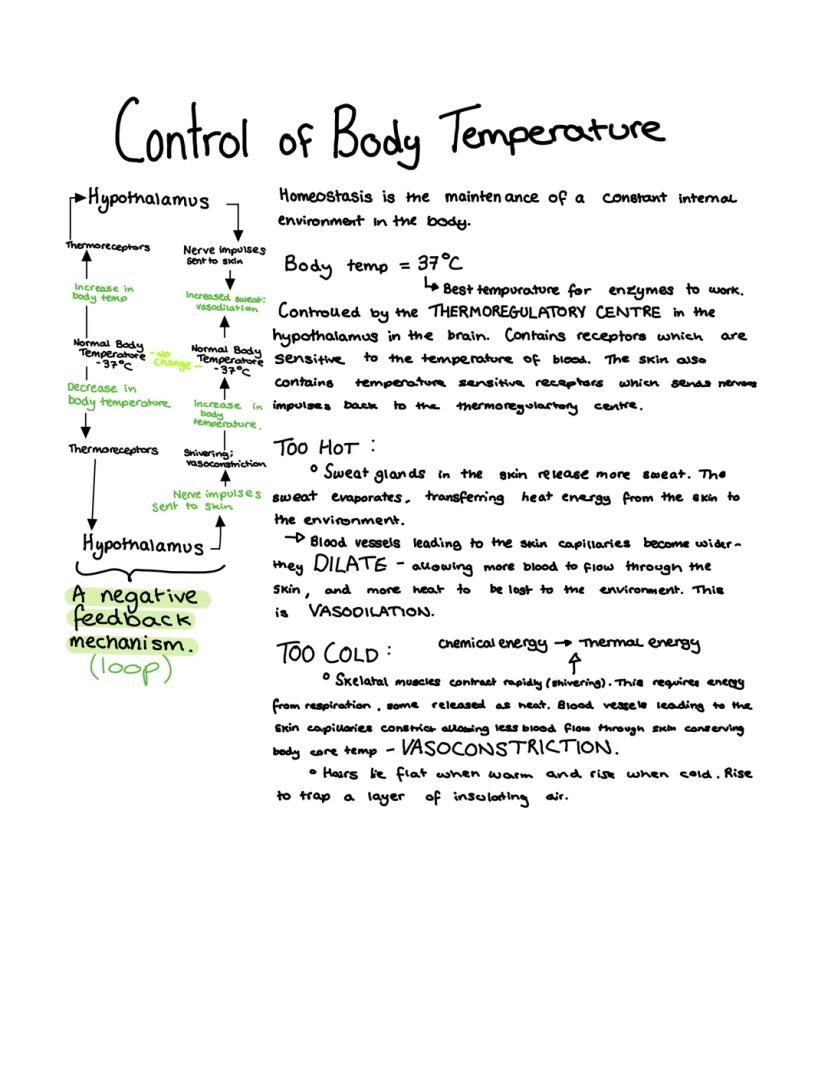 Control of Body Temperature
Hypothalamus
Thermoreceptors
Increase in
body temp
Normal Body
Temperature
-37°C
Decrease in
body temperature
Thermoreceptors
Hypothalamus
Nerve impulses
sent to skin
Increased sweat:
vasodilation
No
Change
Normal Body
Temperature
-37°C
Increase in
body
temperature.
Shivering:
vasoconstriction
Nerve impulses
sent to skin
A negative
feedback
mechanism.
(loop)
Homeostasis is the maintenance of a constant internal
environment in the body.
Body temp = 37°C
Best tempurature for enzymes to work.
Controlled by the THERMOREGULATORY CENTRE in the
hypothalamus in the brain. Contains receptors which are
sensitive to the temperature of blood. The skin also
contains temperature sensitive receptors which sends nervous
impulses back to the thermoregulartory centre.
TOO HOT :
° Sweat glands in the skin release more sweat. The
sweat evaporates, transferring heat energy from the skin to
the environment.
→ Blood vessels leading to the skin capillaries become wider-
they DILATE - allowing more blood to flow through the
skin, and more heat to be lost to the environment. This
is VASODILATION.
TOO COLD : Chemical energy → Thermal energy
° Skelatal muscles contract rapidly (shivering). This requires energy
from respiration, some released as heat. Blood vessels leading to the
skin capillaries constrict allowing less blood flow through skin conserving
body core temp - VASOCONSTRICTION.
° Hairs lie flat when warm and rise when cold. Rise
to trap a layer of insulating air.